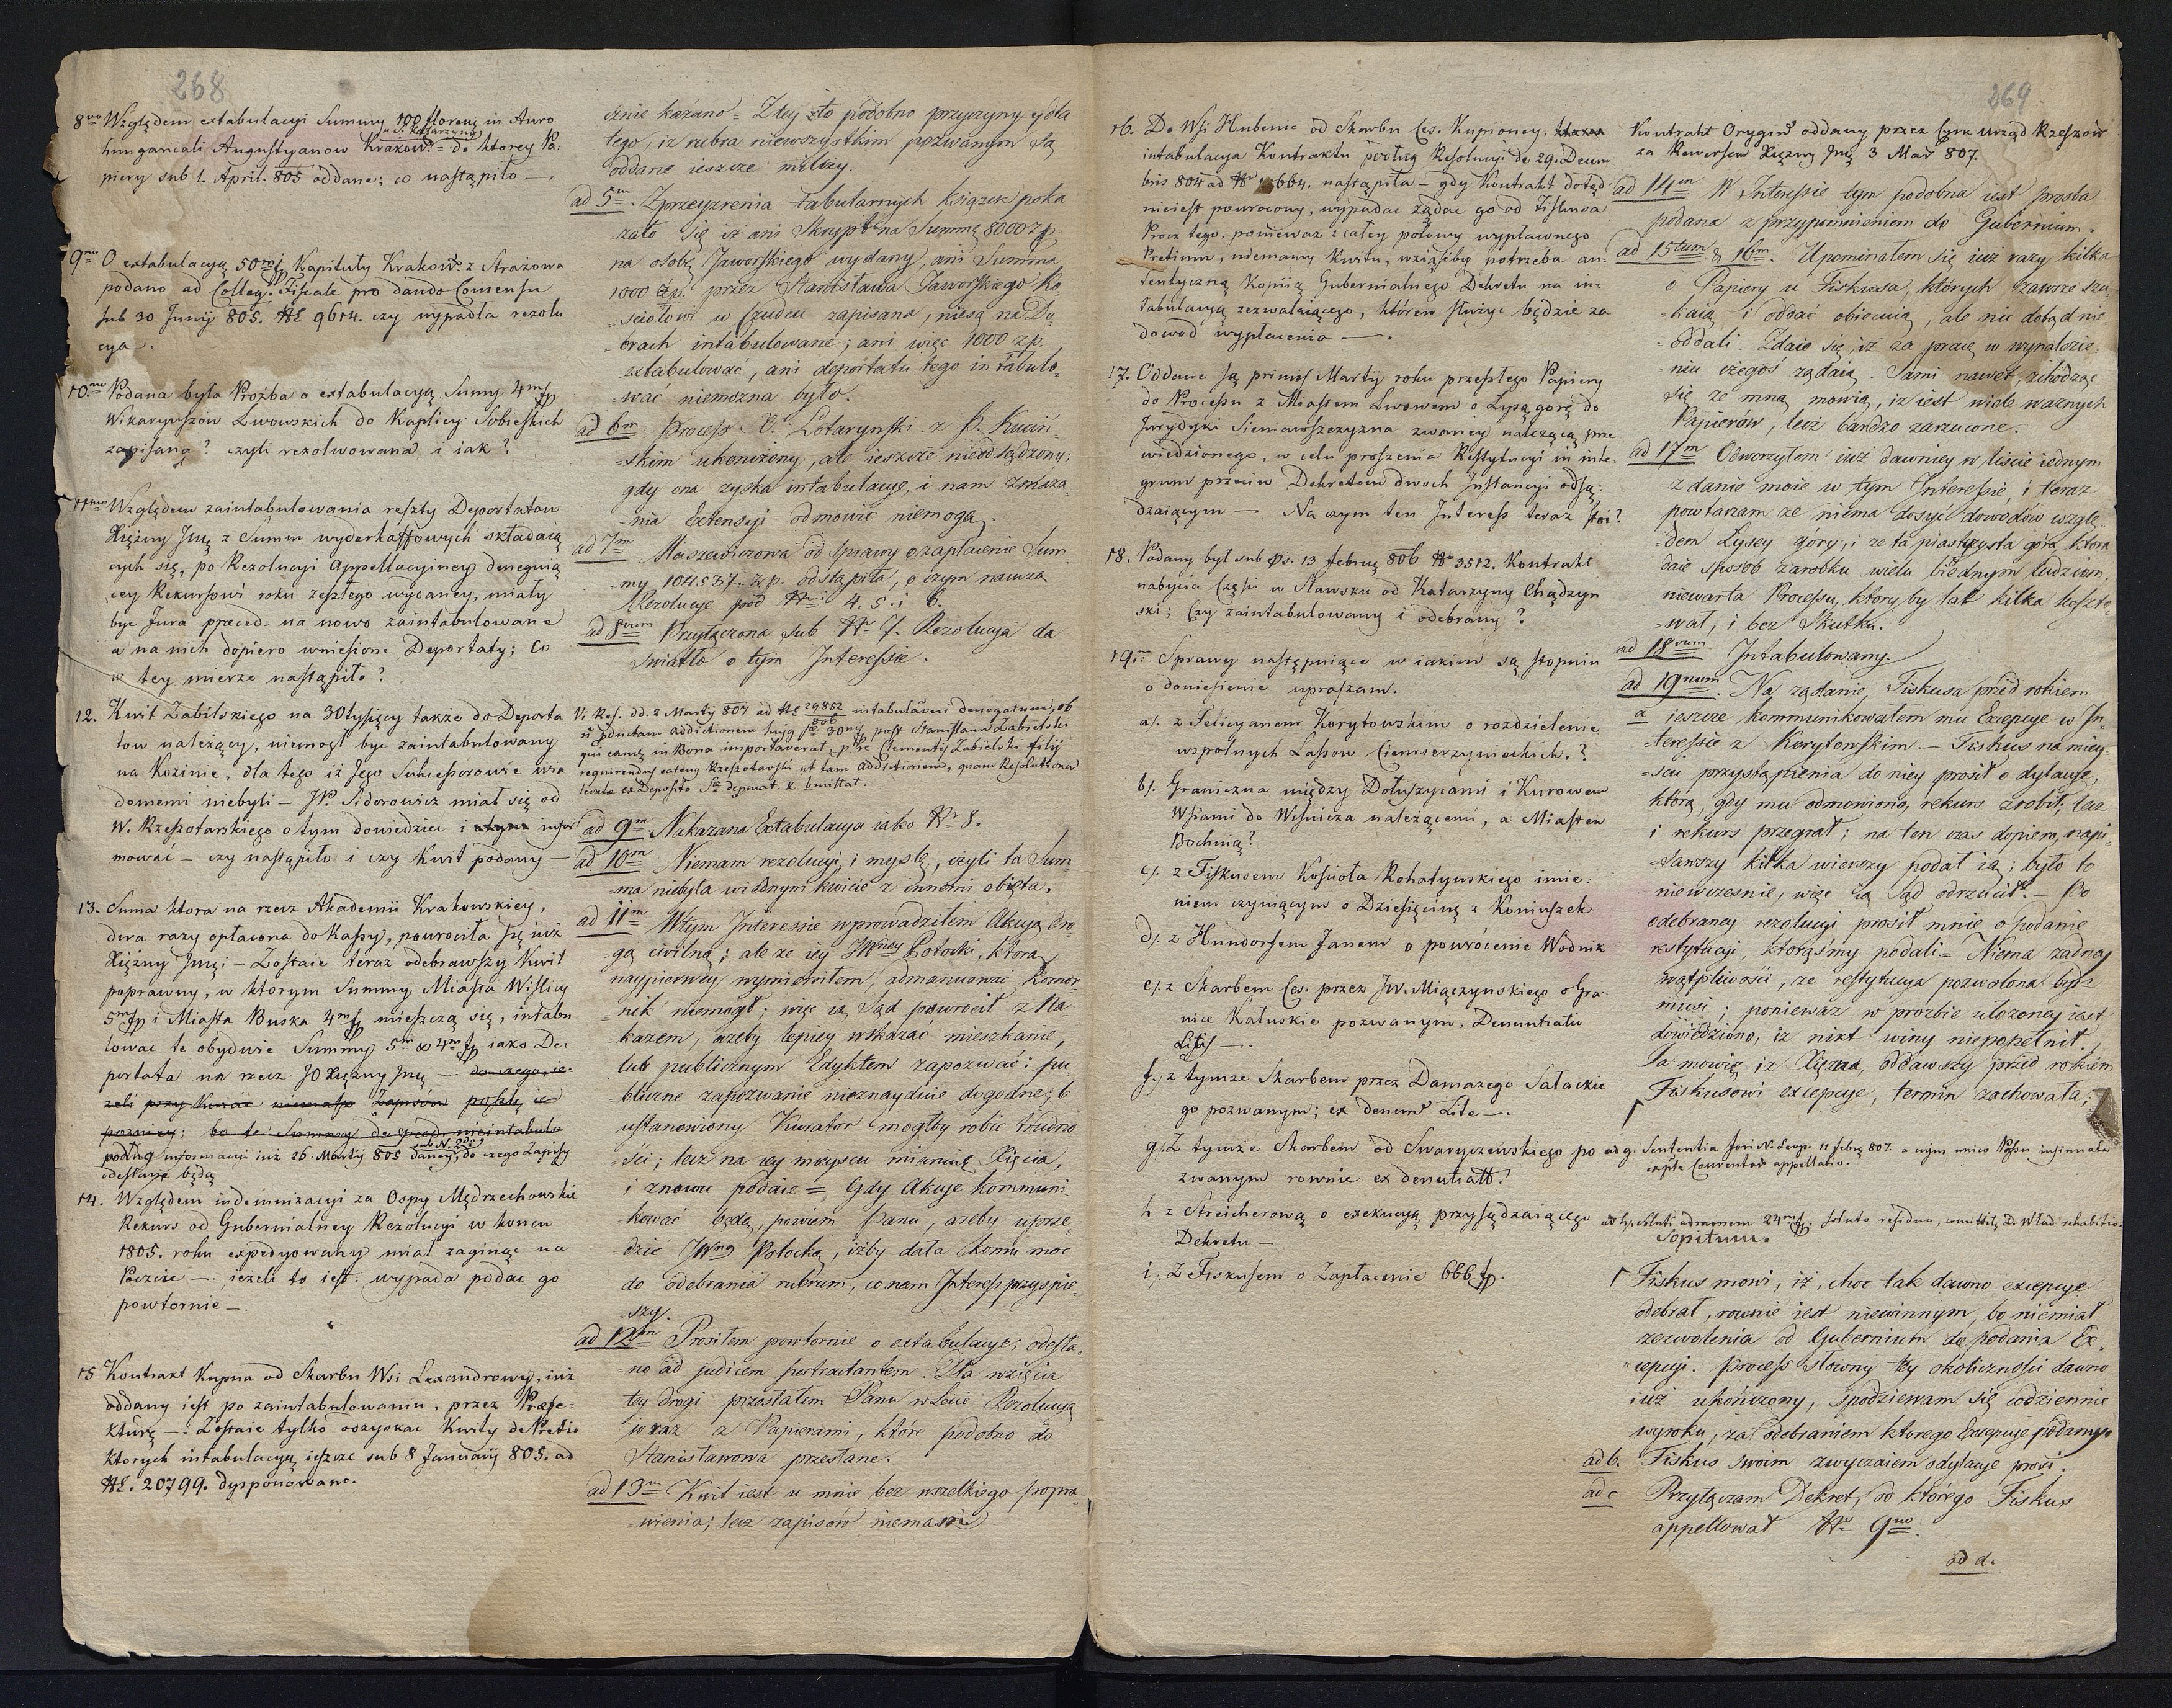 268
8vo Względem extabulacyi Summy 100 florenų in Auro
u S. Katarzyny
hungaricali Augustyanow Krakow. = do ktorey Pa:
piery sub 1. April. 805 oddane; co nastąpiło —.
9no O extabulacyą 50m fp Kapituły Krakow: z Strażowa
podano ad Colleg. Fiscale pro dando Consensu
sub 30 Junij 805. NE 9614. czy wypadła rezolu
cya.
10mo Podana była Prożba o extabulacyą Sumy 4m fp
Wikaryuszow Lwowskich do Kaplicy Sobieskich
zapisaną? czyli rezolwowana i iak?
11mo Względem zaintabulowania reszty Deportatow
Xiężny Jmę z Summ wyderkaffowych składaią
cych się, po Rezolucyi Appellacyiney denegnią
cey Rekursowi roku zeszłego wydaney, miały
być Jura praeced. na nowo zaintabulowane
a na nich dopiero wniesione Deportaty; Co
w tey mierze nastąpiło?
12. Kwit Zabilskiego na 30 tysięcy także do Deporta
tow należący, niemogł być zaintabulowany
na Kozinie, dla tego iż Jego Sukcessorowie wia
domemi niebyli — JP. Sidorowicz miał się od
W. Rzeszotarskiego o tym dowiedziec i infor
mować — czy nastąpiło i czy Kwit podany —
13. Suma ktora na rzecz Akademii Krakowskiey,
dwa razy opłacona do Kassy, powrociła się iuż
Xiężny Jmęi — Zostaie teraz odebrawszy Kwit
poprawny, w ktorym Summy Miasta Wislicy
5m fp i Miasta Buska 4m fp mieszczą się, intabu
lować te obydwie Summy 5m & 4m fp iako De:
portata na rzecz JO Xiężny Jmę —. do czego, ie:
żeli przy Kwicie niemasz Zapisow poszlę ie
pozniey; bo te Summy de praed. nieintabulo
sub N. 22do
podług informacyi iuż 26. Martij 805 daney, do czego Zapisy
odesłane będą
14. Względem indemnizacyi za Ospy Mędrzechowskie
Rekurs od Gubernialney Rezolucyi w koncu
1805. roku expedyowany miał zaginąć na
Poczcie —. ieżeli to iest: wypada podać go
powtornie —.
15 Kontrakt Kupna od Skarbu Wsi Lexandrowy, iuż
oddany iest po zaintabulowaniu, przez Praefe=
kturę —: Zostaie tylko odzyskac Kwity de Pretio
ktorych intabulacyą ieszcze sub 8 Januarij 805. ad
NE. 20799. dysponowano.
cznie kazano = Z tey to podobno przyczyny cysta
tego, iż rubra niewszystkim pozwanym są
oddane ieszcze milczy.
ad 5m. Z przeyzrenia tabularnych książek poka
-zało się iż ani Skrypt na Summę 8000 zp.
na osobę Jaworskiego wydany, ani Summa
1000 zp. przez Stanisława Jaworskiego Ko-
-sciołowi w Czudcu zapisana, niesą na Do-
-brach intabulowane; ani więc 1000 zp.
extabulować, ani deportatu tego intabulo-
-wać niemożna było.
ad 6m Process P. Lotaryński z P. Kuciń-
-skim ukonczony, ale ieszcze nieodsądzony;
gdy ona zyska intabulacye, i nam zwraca-
-nia Extensyi odmowić niemogą.
ad 7m Staszewiczowa od sprawy o zapłacenie Sum-
-my 104537. zp. odstąpiła, o czym naucza
Rezolucye pod Nri 4. 5. i 6.
ad 8vum Przyłączona sub Nr 7. Rezolucya da
swiatło o tym Interessie.
V. Res. dd. 2 Martij 807 ad NE 29852/806 intabulatem denegatum, ob
n. pductam addictionem hujg Sae 30m fp, post Stanislaum Zabielski
qui eamq in Bona importaverat, p pte Clementij Zabielski filij
requirendus eateng Rzeszotarski, ut tam addictionem, quam Resolutionem
levatae ex Deposito Sae deputat. & emittat.
ad 9m Nakazana Extabulacya iako Nr 8.
ad 10m Niemam rezolucyi, i myslę, czyli ta Sum-
-ma niebyła wiednym kwicie z innemi obięta.
ad 11m W tym Interessie wprowadziłem Akcyą dro-
-gą cywilną; ale ze iey JWney Potocki, ktorą
naypierwey wymieniłem, admanuować Komor-
-nik niemogł; więc ią Sąd powrocił z Na-
-kazem, azeby lepiey wskazać mieszkanie,
lub publicznym Edyktem zapozwać: pu-
-bliczne zapozwanie nieznayduie dogodne, b
ustanowiony Kurator mogłby robić trudno-
-ści; lecz na iey mieyscu mianuię Xięcia,
i znowu podaię = Gdy Akcye kommuni-
-kować będą, powiem Panu, azeby uprze-
-dzić JWną Potocką, iżby dała komu moc
do odebrania rubrum, co nam Interess przyspie-
-szy.
ad 12m Prosiłem powtornie o extabulacye; odesła-
-no ad judicem pertractantem. Dla wzięcia
tey drogi przesłałem Panu w Lwie Rezolucyą
wraz z Papierami, które podobno do
Stanisławowa przesłane.
ad 13m Kwit iest u mnie bez wszelkiego popra-
-wienia; lecz zapisów niemasz
269
16. Do Wsi Hubenic od Skarbu Ces. Kupioney,
intabulacya Kontraktu podług Resolucyi de 29. Decem
bris 804 ad Nr 15664. nastąpiła — gdy Kontrakt dotąd
nieiest powrocony, wypadać żądać go od Fiskusa
Procz tego. ponieważ z całey połowy wypłaconego
Pretium, niemamy Kwitu, wziąśćby potrzeba au:
tentyczną Kopiią Gubernialnego Dekretu na in:
tabulacyą zezwalaiącego, któren służyć będzie za
dowod wypłacenia —.
17. Oddane są primis Martij roku przeszłego Papiery
do Processu z Miastem Lwowem o Łysą gorę do
Jurydyki Sieniawszczyzna zwaney należącą prze
wiedzionego, w celu proszenia Restytucyi in inte-
grum przeciw Dekretom dwoch Instancyi odsą:
dzaiącym — Na czym ten Interess teraz stoi?
18. Podany był sub Ps. 13 Februę 806 Nr 3512. Kontrakt
nabycia Części w Sławsku od Katarzyny Chądzyn
ski; Czy zaintabulowany i odebrany?
19. Sprawy następuiące w iakim są stopniu
o doniesienie upraszam.
a). z Felicyanem Korytowskim o rozdzielenie
wspolnych Lassow Ciemierzynieckich.?
b). Graniczna między Dołuszycami i Kurowem
Wsiami do Wisnicza należącemi, a Miastem
Bochnią?
c). z Fiskusem Kosciola Rohatynskiego imie:
niem czyniącym o Dziesięcinę z Koniuszek
d). z Hundorsem Janem o powrocenie Wodnik
e). z Skarbem Ces. przez Jw. Miączynskiego o Gra
nice Kałuskie pozwanym. Denuntiatio
Litis —.
f.) z tymze Skarbem przez Damazego Sałackie
go pozwanym; ex denunt. Lite —.
g). Z tymże Skarbem od Swaryczewskiego po
zwanym rownie ex denuntiatt.?
h z Streicherową o exekucyą przysądzaiącego
Dekretu —
i). Z Fiskusem o Zapłacenie 666 fp.
Kontrakt Orygin. oddany przez Cyrk urząd Rzeszow
za Rewersem Xiężny Jmę 3 Mar 807.
ad 14m W Interessie tym podobna iest prosba
podana z przypomnieniem do Gubernium.
ad 15tum & 16m. Upominałem się iuż razy kilka
o Papiery u Fiskusa, których zawsze szu-
-kaią i oddać obiecuią, ale nic dotąd nie-
-oddali. Zdaie się, iż za pracę w wynalezie-
-niu czegoś żądaią. Sami nawet, zchodząc
się ze mną mowią, iż iest wiele waznych
Papierów, lecz bardzo zarzucone.
ad 17m Odworzyłem iuż dawniey w liscie iednym
zdanie moie w tym Interessie, i teraz
powtarzam ze niema dosyć dowodów wzglę-
-dem Łysey gory; i ze ta piaszczysta góra, ktora
daie sposob zarobku wielu biednym ludziom,
niewarta Processu, ktory by lat kilka koszto-
-wał, i bez skutku.
ad 18vum Intabulowany.
ad 19num. Na żądanie Fiskusa przed rokiem
a ieszcze kommunikowałem mu Excepcye w In-
-teressie z Korytowskim. — Fiskus na miey-
-scu przystąpienia do niey prosił o dylacye,
którą, gdy mu odmowiono, rekurs zrobił, lecz
i rekurs przegrał; na ten czas dopiero, napi-
-sawszy kilka wierszy podał ią; było to
niewczesnie, więc ią Sąd odrzucił. — Po
odebraney rezolucyi prosił mnie o podanie
restytucyi, którąśmy podali = Niema żadney
wątpliwości, że restytucya pozwolona być
musi; ponieważ w prozbie ułożoney iest
dowiedziono, iż nikt winy niepopełnił.
Ja mowię iż Xiężna, oddawszy przed rokiem
Fiskusowi excepcye, termin zachowała;
ad g. Sententia Fori N. Leop. 11 Febrę 807. a cujus unico Passu insinuata
expte Conventor. appellatio.
ad h). Soluti adramem 24m fp. soluto residuo, Wład rehabitio.
Sopitum.
Fiskus mowi, iż, choc tak dawno excepcye
odebrał, rownie iest niewinnym, bo niemiał
zezwolenia od Gubernium do podania Ex-
-cepcyi. Process słowny tey okoliczności dawno
iuż ukończony, spodziewam się codziennie
wyroku, za odebraniem ktorego Excepcye podamy.
ad b. Fiskus swoim zwyczaiem o dylacye prosi.
ad c Przyłączam Dekret, od którego Fiskus
appellował Nro 9no.
ad d.